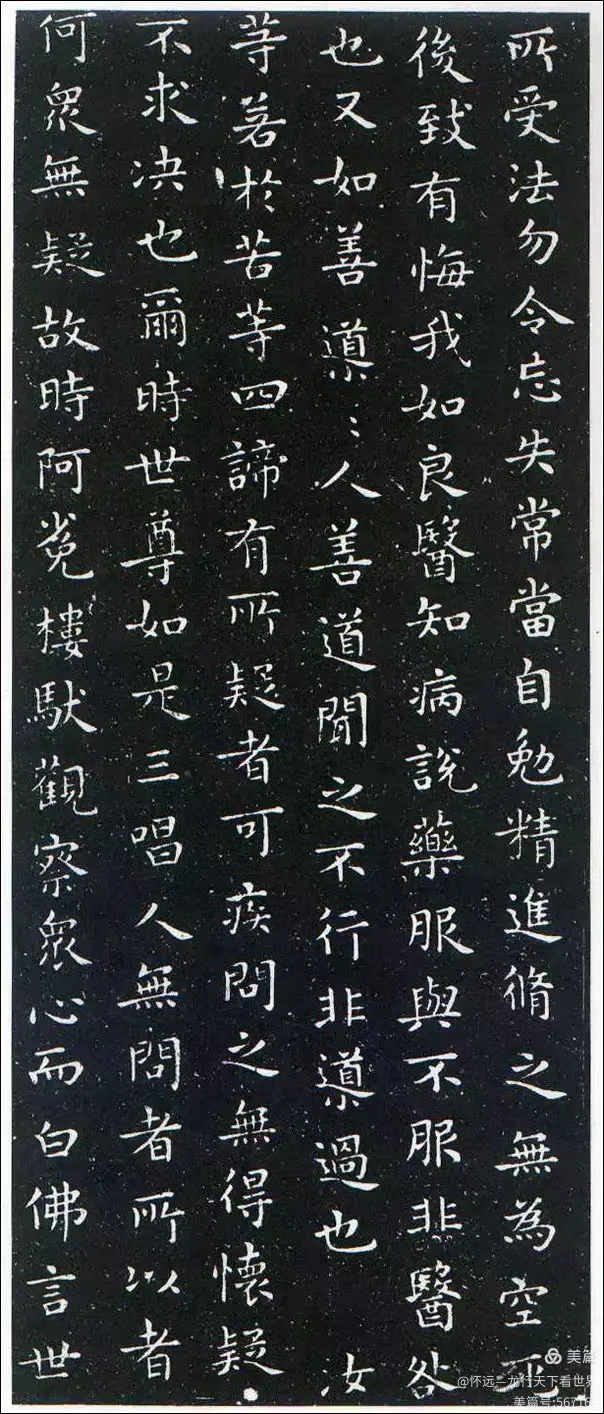 所受法勿令忘失常當自勉精進脩之無為空死
後致有悔我如良醫知病說藥服與不服非醫咎
也又如善導〻人善道聞之不行非導過也 汝
等若於苦等四諦有所疑者可疾問之無得懷疑
不求决也爾時世尊如是三唱人無問者所以者
何眾無疑故時阿㝹樓馱觀察眾心而白佛言世
美篇
@怀远二龙行天下看世界
美篇号:56716